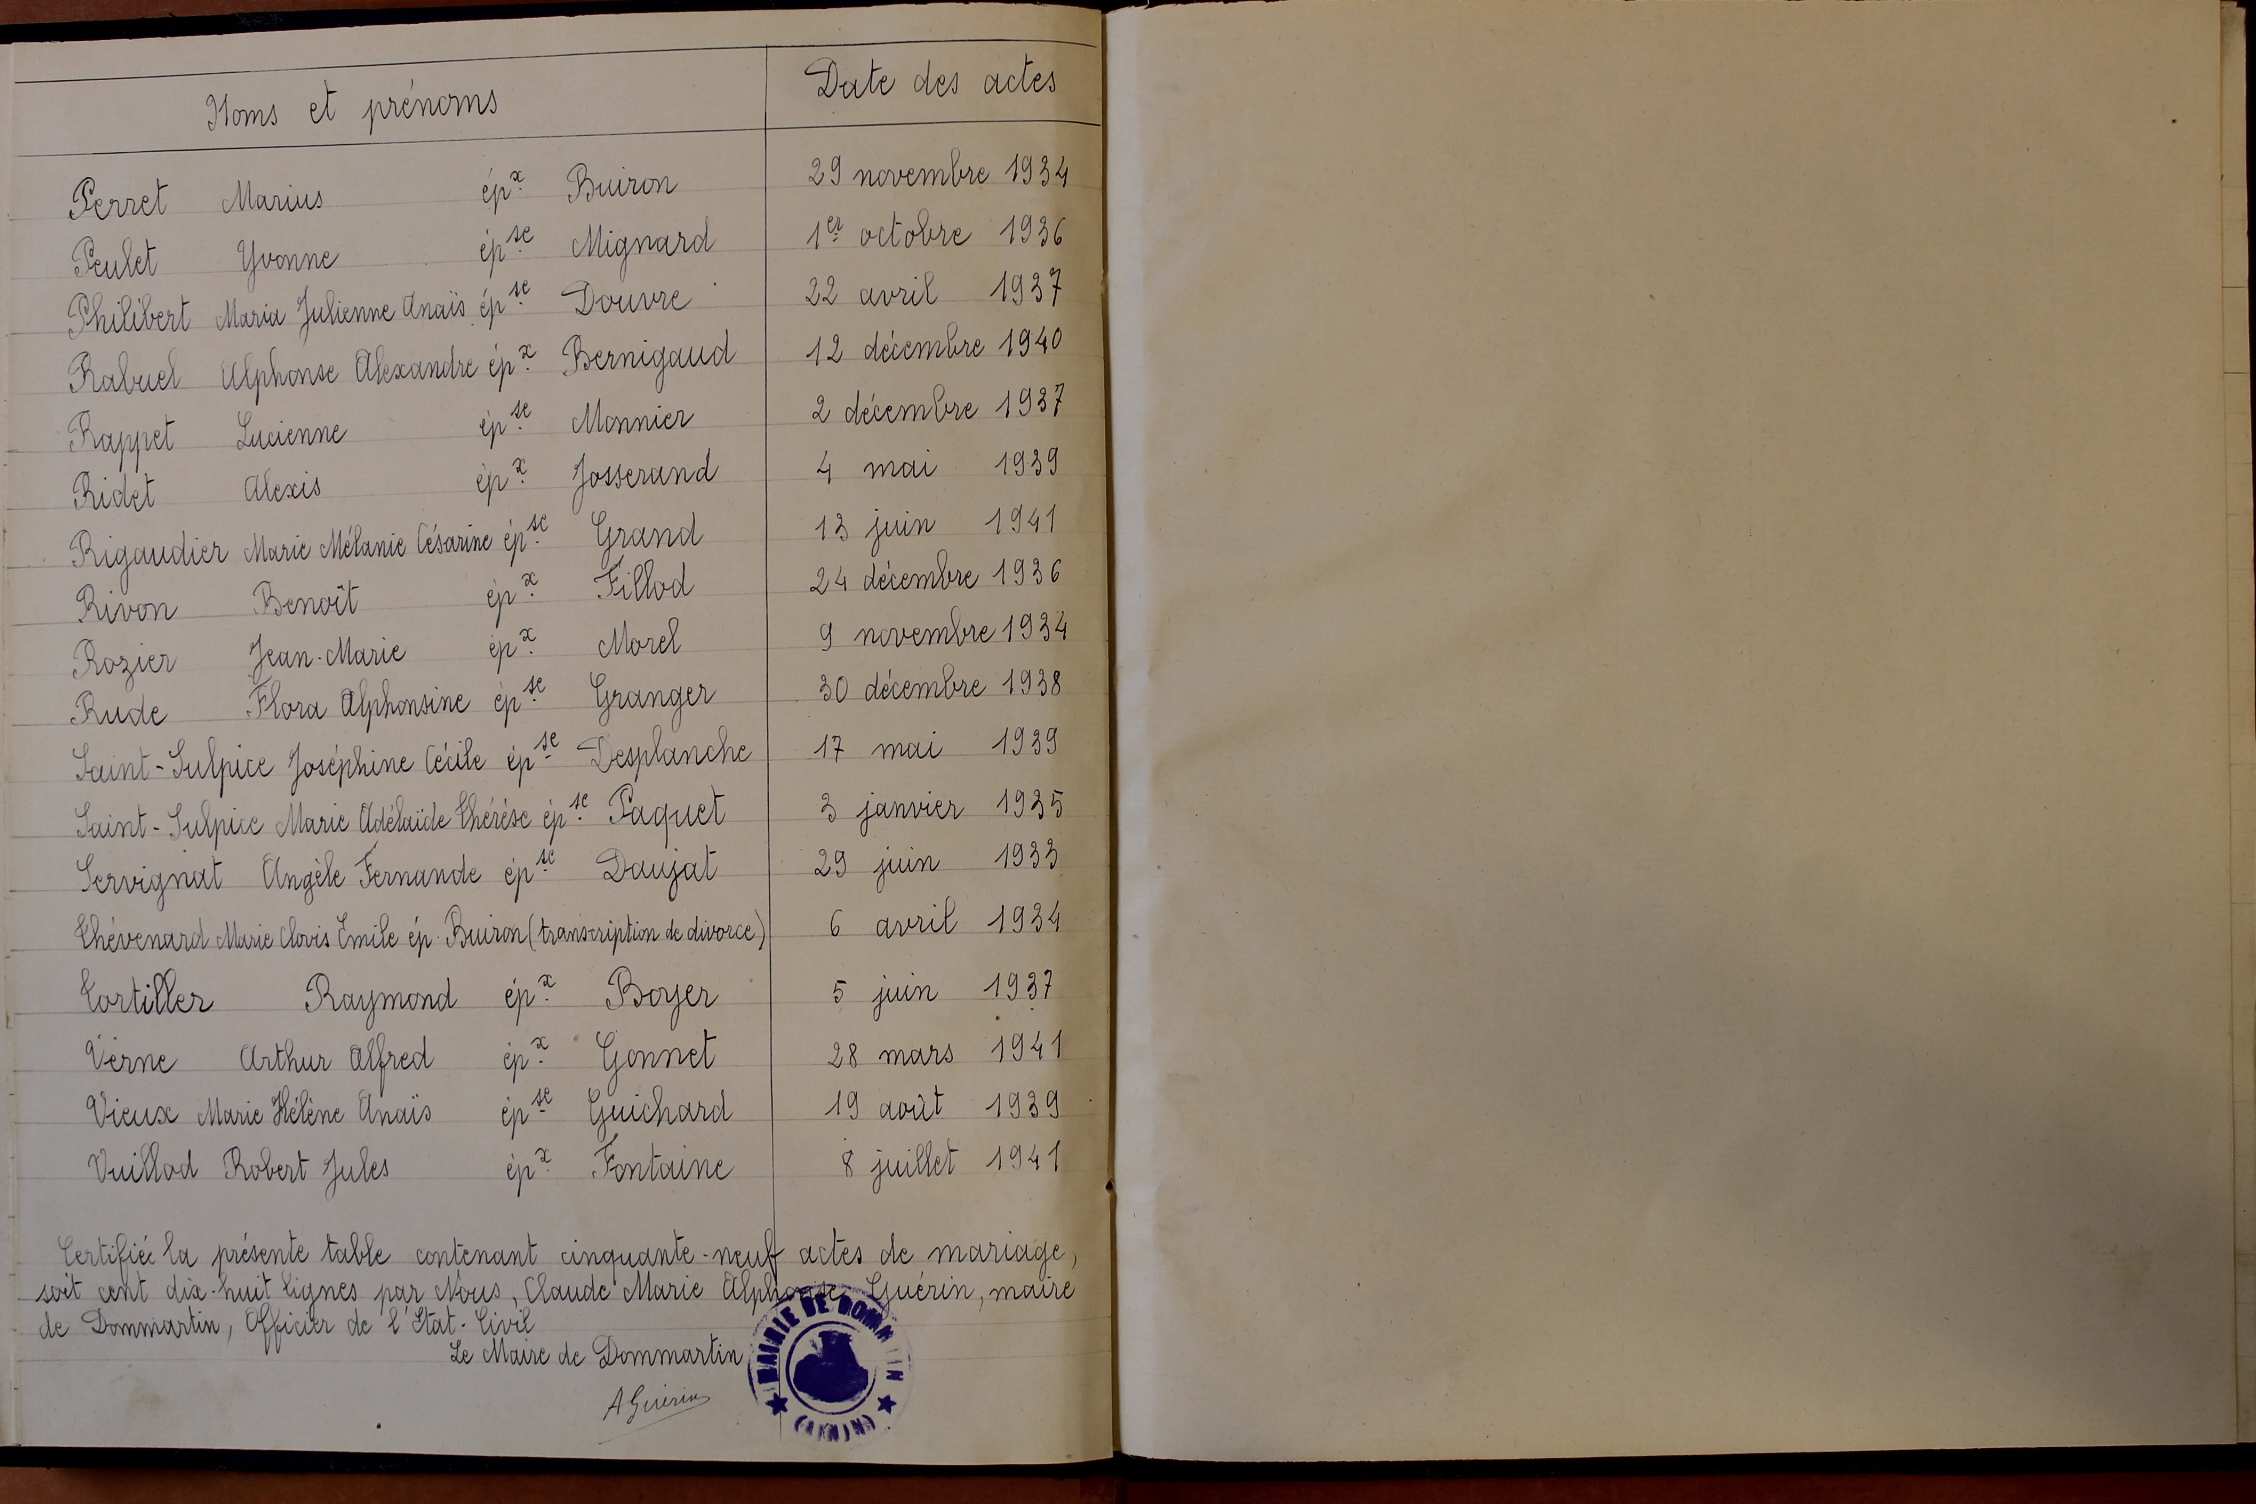 Noms et prénoms Date des actes
Perret Marius épx Buiron 29 novembre 1934
Peulet Yvonne épse Mignard 1er octobre 1936
Philibert Maria Julienne Anaïs épse Douvre 22 avril 1937
Rabuel Alphonse Alexandre épx Bernigaud 12 décembre 1940
Rappet Lucienne épse Monnier 2 décembre 1937
Ridet Alexis épx Josserand 4 mai 1939
Rigaudier Marie Mélanie Césarine épse Grand 13 juin 1941
Rivon Benoît épx Fillod 24 décembre 1936
Rozier Jean-Marie épx Morel 9 novembre 1934
Rude Flora Alphonsine épse Granger 30 décembre 1938
Saint-Sulpice Joséphine Cécile épse Desplanche 17 mai 1939
Saint-Sulpice Marie Adélaïde Thérèse épse Paquet 3 janvier 1935
Servignat Angèle Fernande épse Daujat 29 juin 1933
Thévenard Marie Clovis Emile ép. Buiron (transcription de divorce) 6 avril 1934
Tortiller Raymond épx Boyer 5 juin 1937
Verne Arthur Alfred épx Gonnet 28 mars 1941
Vieux Marie Hélène Anaïs épse Guichard 19 août 1939
Vuillod Robert Jules épx Fontaine 8 juillet 1941
Certifiée la présente table contenant cinquante-neuf actes de mariage,
soit cent dix-huit lignes par Nous, Claude Marie Alphonse Guérin, maire
de Dommartin, Officier de l'Etat-Civil
Le Maire de Dommartin
A Guérin
MAIRIE DE DOMMARTIN